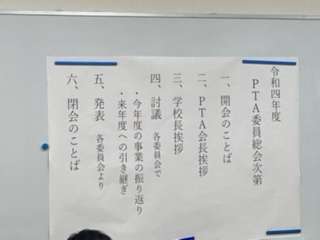 令和四年度
PTA委員総会次第
一、開会のことば
二、PTA会長挨拶
三、学校長挨拶
四、討議 各委員会で
・今年度の事業の振り返り
・来年度への引き継ぎ
五、発表 各委員会より
六、閉会のことば